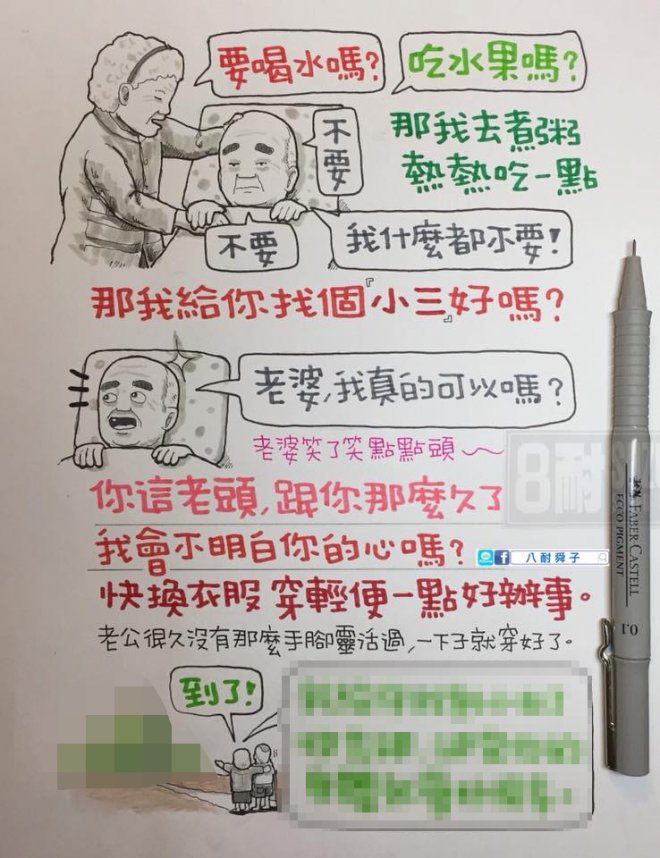 要喝水嗎?
吃水果嗎?
不要
那我去煮粥
熱熱吃一點
不要
我什麼都不要!
那我給你找個『小三』好嗎?
老婆,我真的可以嗎?
老婆笑了笑點點頭~
你這老頭,跟你那麼久了
我會不明白你的心嗎?
八耐舜子
快換衣服穿輕便一點好辦事。
老公很久沒有那麼手腳靈活過,一下子就穿好了。
到了!
8耐
FABER CASTELL
ECCO PIGMENT
0.1